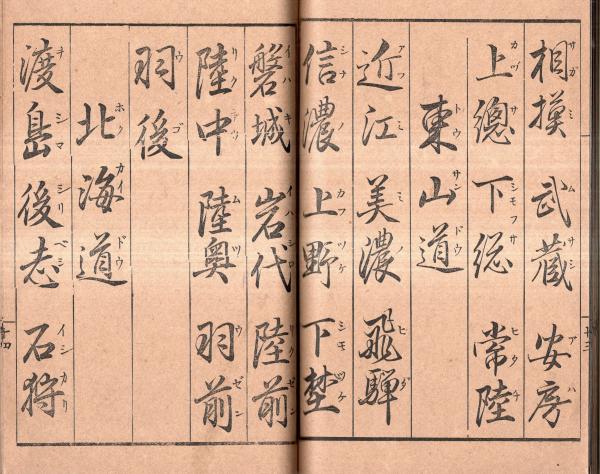 サガミ ムサシ アハ
相摸 武蔵 安房
カヅサ シモフサ ヒタチ
上總 下総 常陸
トウサンドウ
東山道
アフミ ミノ ヒダ
近江 美濃 飛騨
シナノ カフツケ シモツケ
信濃 上野 下埜
廿三
イハキ イハシロ リクゼン
磐城 岩代 陸前
リクチウ ムツ ウゼン
陸中 陸奥 羽前
ウゴ
羽後
ホクカイドウ
北海道
シマ シリベシ イシカリ
渡島 後志 石狩
廿四